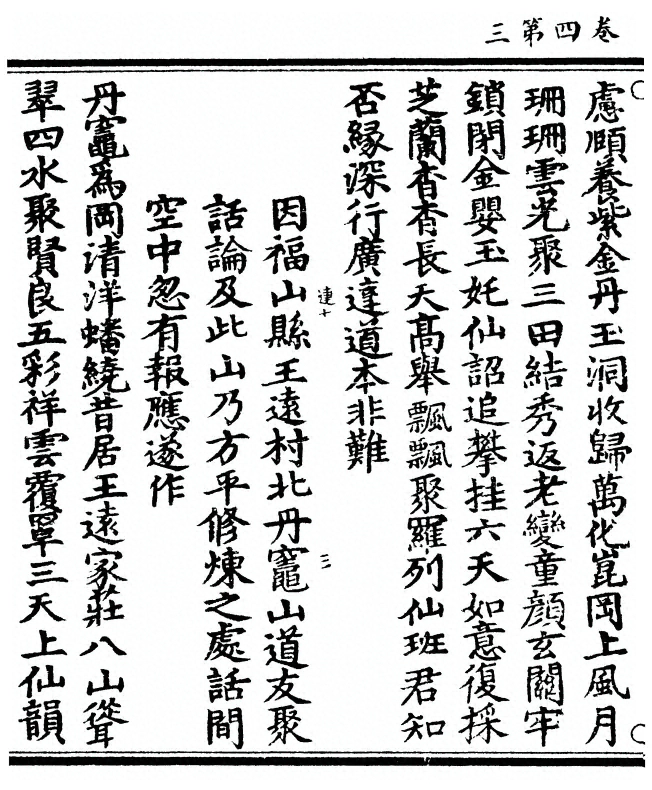 三第四卷
慮頤養紫金丹玉洞收歸萬化崑岡上風月
珊珊雲光聚三田結秀返老變童顔玄關牢
鎖閉金嬰玉姹仙詔追攀掛六天如意復採
芝蘭杳杳長天高舉飄飄聚羅列仙班君知
否緣深行廣達道本非難
因福山縣王遠村北丹竈山道友聚
話論及此山乃方平修煉之處話間
空中忽有報應遂作
丹竈爲岡清洋蟠繞昔居王遠家莊八山聳
翠四水聚賢良五彩祥雲覆罩三天上仙韻
連十
三